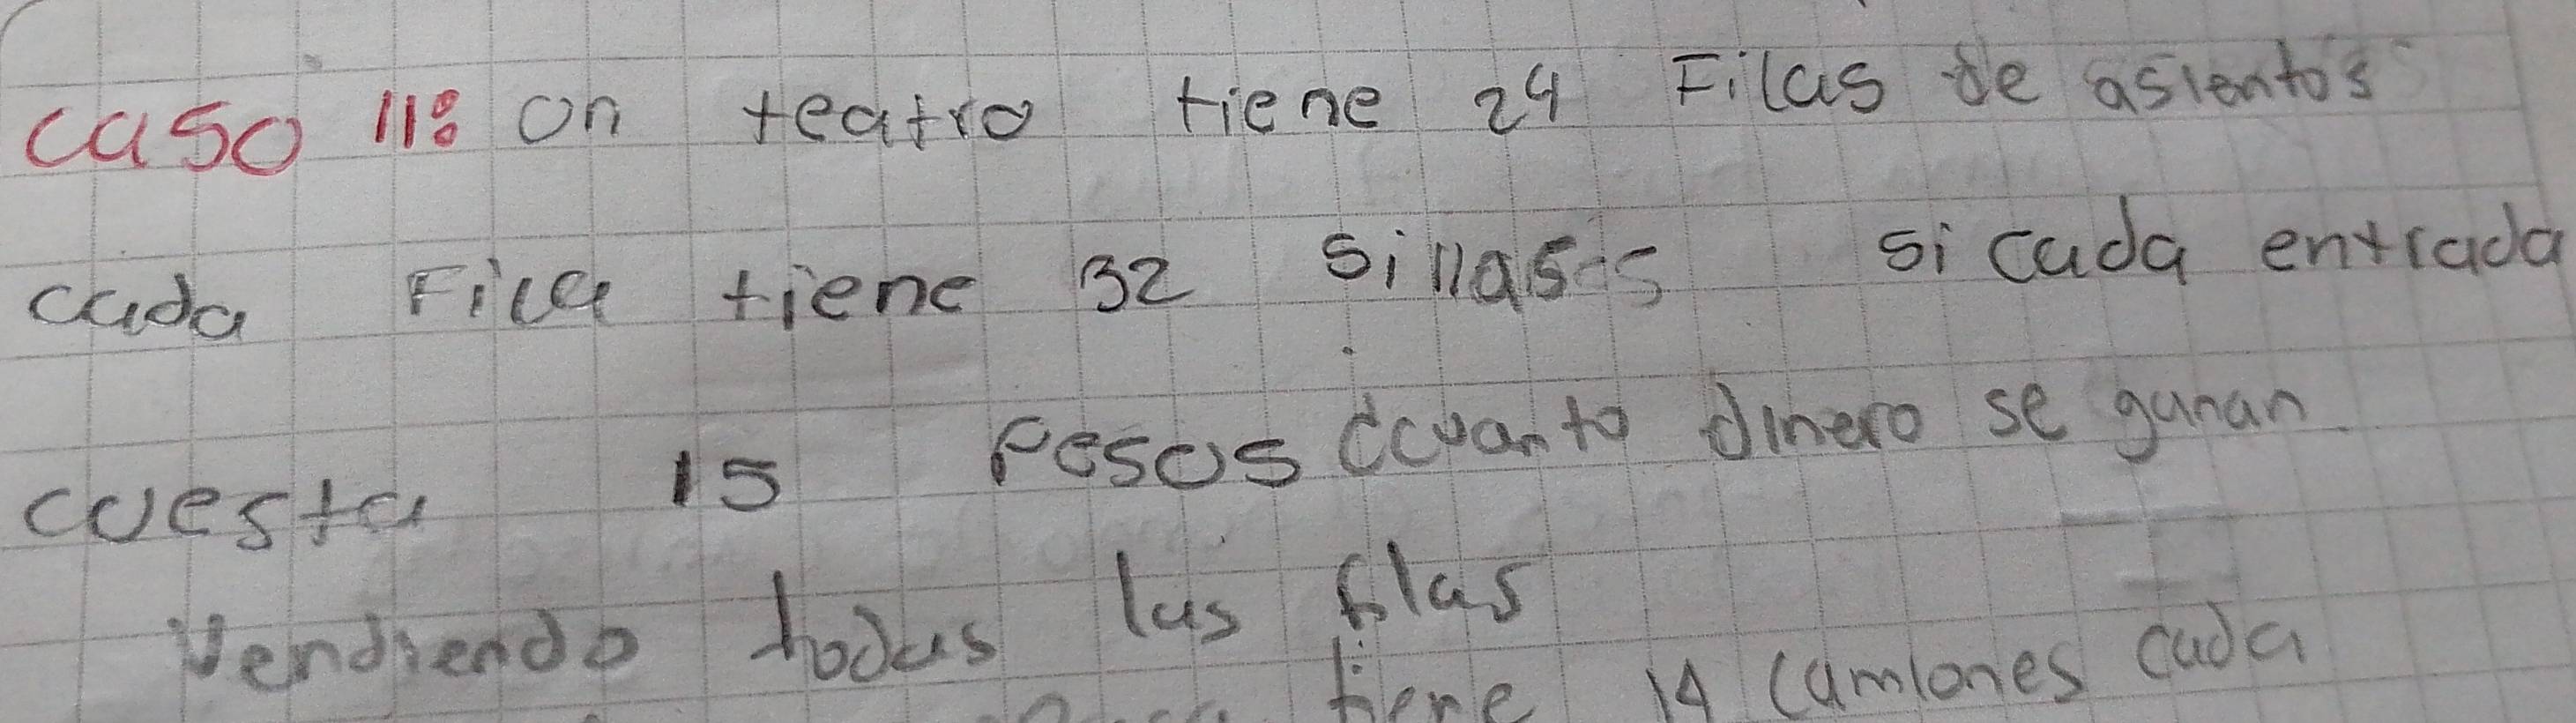 caso 11: on teatro tiene 24 Filas de asientos
cada Fila tiene 32 sillas si cada entrada
cuesta 15 Pesos ¿cuanto dinero se ganan
Vendiendo todas las filas
tiene 14 camiones cada